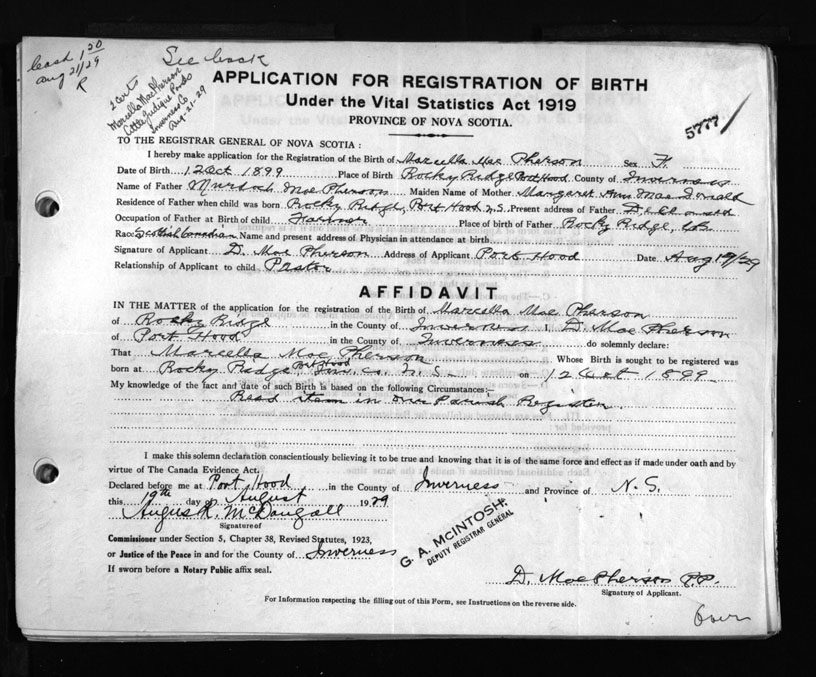 Cash 1 20
Aug 21/29
R
See back
2 certs
Marcella MacPherson
Little Judique Ponds
Inverness Co
Aug-21-29
5777
APPLICATION FOR REGISTRATION OF BIRTH
Under the Vital Statistics Act 1919
PROVINCE OF NOVA SCOTIA.
TO THE REGISTRAR GENERAL OF NOVA SCOTIA:
I hereby make application for the Registration of the Birth of Marcella Mac Pherson Sex F.
Date of Birth 12 Oct 1899 Place of Birth Rocky Ridge Port Hood County of Inverness
Name of Father Murdoch Mac Pherson Maiden Name of Mother Margaret Ann Mac Donald
Residence of Father when child was born Rocky Ridge, Port Hood N.S. Present address of Father
Occupation of Father at Birth of child Farmer Place of birth of Father Rocky Ridge, CB
Race Scottish Canadian Name and present address of Physician in attendance at birth
Signature of Applicant D. Mac Pherson Address of Applicant Port Hood Date Aug 19/29
Relationship of Applicant to child Pastor
AFFIDAVIT
IN THE MATTER of the application for the registration of the Birth of Marcella Mac Pherson
of Rocky Ridge in the County of Inverness I, D. Mac Pherson
of Port Hood in the County of Inverness do solemnly declare:
That Marcella Mac Pherson Whose Birth is sought to be registered was
born at Rocky Ridge Port Hood Inv. Co. N.S. on 12 Oct 1899
My knowledge of the fact and date of such Birth is based on the following Circumstances:—
Read item in our Parish Register.
I make this solemn declaration conscientiously believing it to be true and knowing that it is of the same force and effect as if made under oath and by
virtue of The Canada Evidence Act.
Declared before me at Port Hood in the County of Inverness and Province of N.S.
this 19th day of August 1929
Angus R. McDougall
Signature of
Commissioner under Section 5, Chapter 38, Revised Statutes, 1923,
or Justice of the Peace in and for the County of Inverness
If sworn before a Notary Public affix seal.
G. A. McINTOSH.
DEPUTY REGISTRAR GENERAL
D. MacPherson P.P.
Signature of Applicant.
For Information respecting the filling out of this Form, see Instructions on the reverse side.
Over